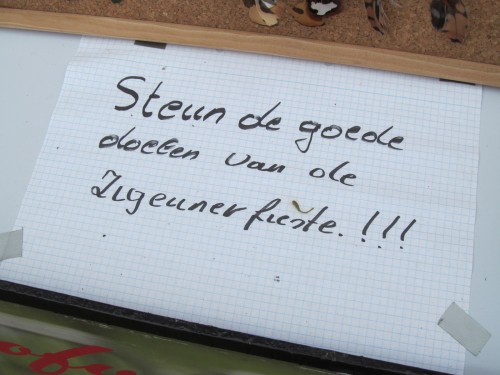 Steun de goede
doelen van de
Zigeuner fieste.!!!